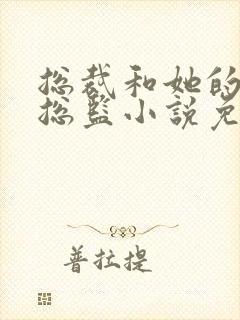 总裁和她的
总监小说免
普拉提